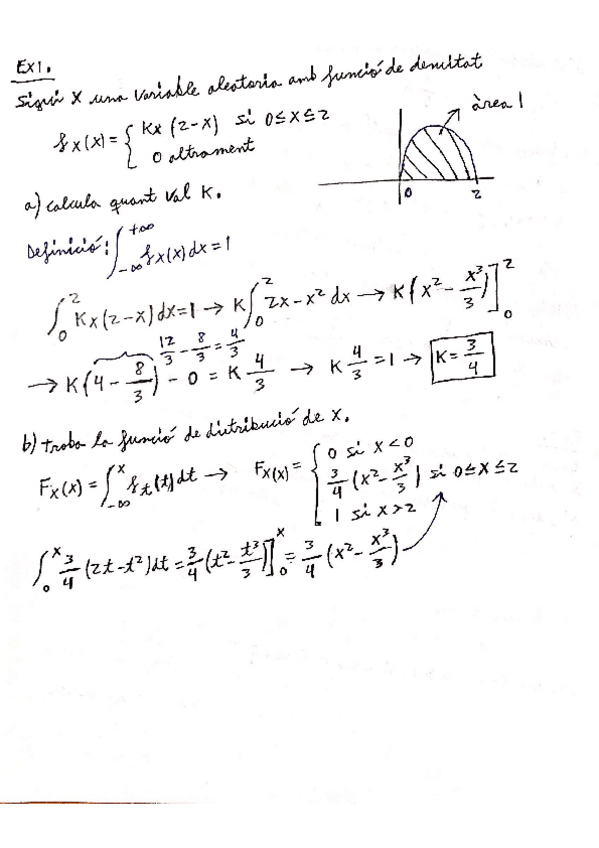 EX1.
Sigui X una variable aleatoria amb funció de densitat
fx(x) = { Kx (2-x) si 0≤x≤2
0 altrament
àrea 1
0 2
a) calcula quant val K.
Definició: ∫_{-∞}^{+∞} fx(x) dx = 1
∫_0^2 Kx(2-x) dx = 1 → K ∫_0^2 2x - x² dx → K (x² - x³/3)]_0^2
12/3 - 8/3 = 4/3
→ K (4 - 8/3) - 0 = K 4/3 → K 4/3 = 1 → K = 3/4
b) troba la funció de distribució de X.
Fx(x) = ∫_{-∞}^x ft(t) dt → Fx(x) = { 0 si x<0
3/4 (x² - x³/3) si 0≤x≤2
1 si x>2
∫_0^x 3/4 (2t - t²) dt = 3/4 (t² - t³/3)]_0^x = 3/4 (x² - x³/3)